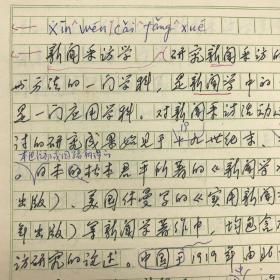 xīn wén cǎi fǎng xué
新闻采访学 研究新闻采访的
与方法的一门学科,是新闻学中的
是一门应用学科。对新闻采访活动
过的研究成果始见于十九世纪末、
。日本的松本君平所著的《新闻学
出版)、美国休曼的《实用新闻
出版)等新闻学著作中,均包含
访研究的论述。中国于1919年由